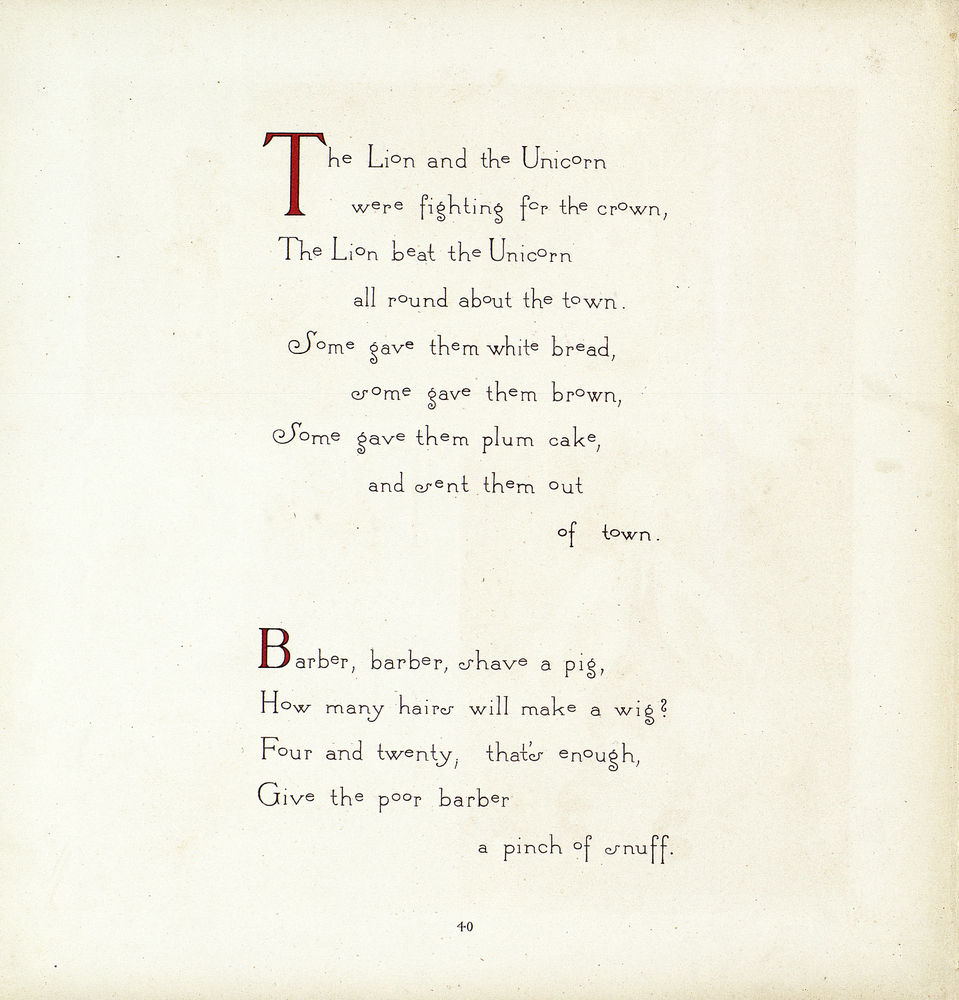 The Lion and the Unicorn
were fighting for the crown,
The Lion beat the Unicorn
all round about the town.
Some gave them white bread,
some gave them brown,
Some gave them plum cake,
and sent them out
of town.
Barber, barber, shave a pig,
How many hairs will make a wig?
Four and twenty; that's enough,
Give the poor barber
a pinch of snuff.
40